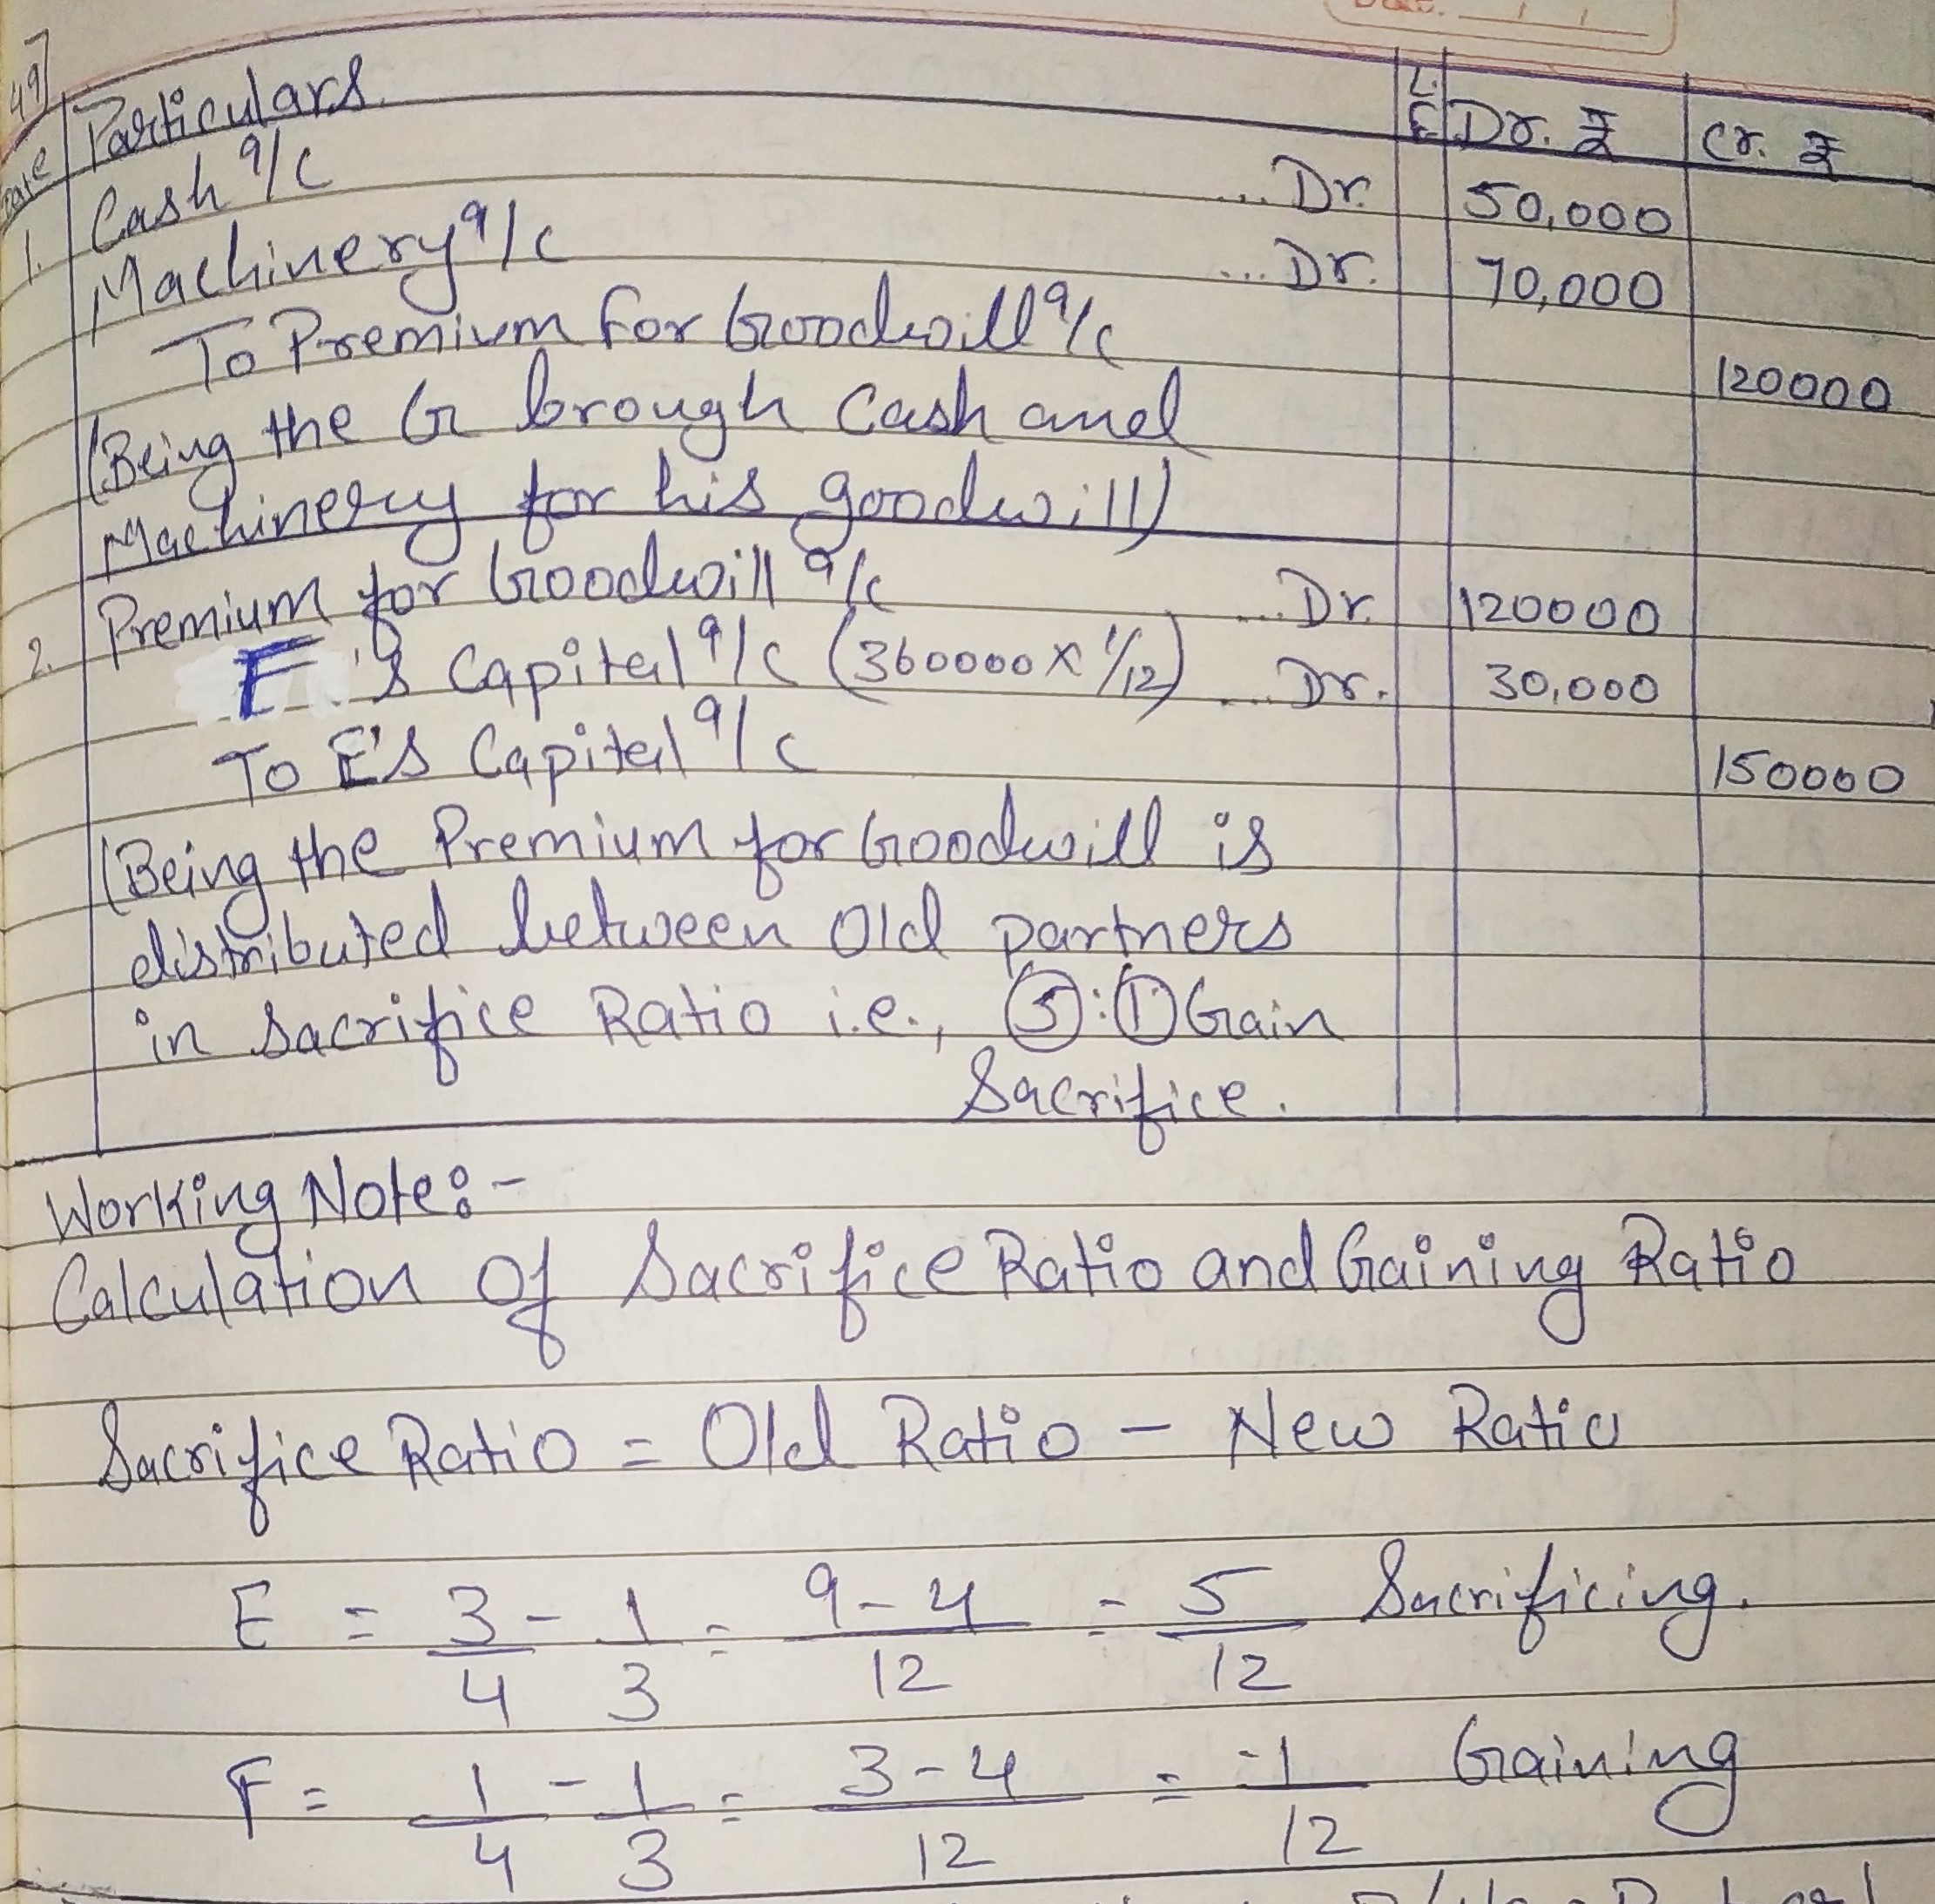 Date. / /
49]
Date Particulars L.F. Dr. ₹ Cr. ₹
1. Cash a/c ... Dr. 50,000
Machinery a/c ... Dr. 70,000
To Premium for Goodwill a/c 120000
(Being the G brough Cash and
Machinery for his goodwill)
2. Premium for Goodwill a/c ... Dr. 120000
F's Capital a/c (360000 x 1/12) ... Dr. 30,000
To E's Capital a/c 150000
(Being the Premium for Goodwill is
distributed between Old partners
in Sacrifice Ratio i.e., 5:1 Gain
Sacrifice.
Working Note:-
Calculation Of Sacrifice Ratio and Gaining Ratio
Sacrifice Ratio = Old Ratio - New Ratio
E = 3/4 - 1/3 = 9-4/12 = 5/12 Sacrificing.
F = 1/4 - 1/3 = 3-4/12 = -1/12 Gaining